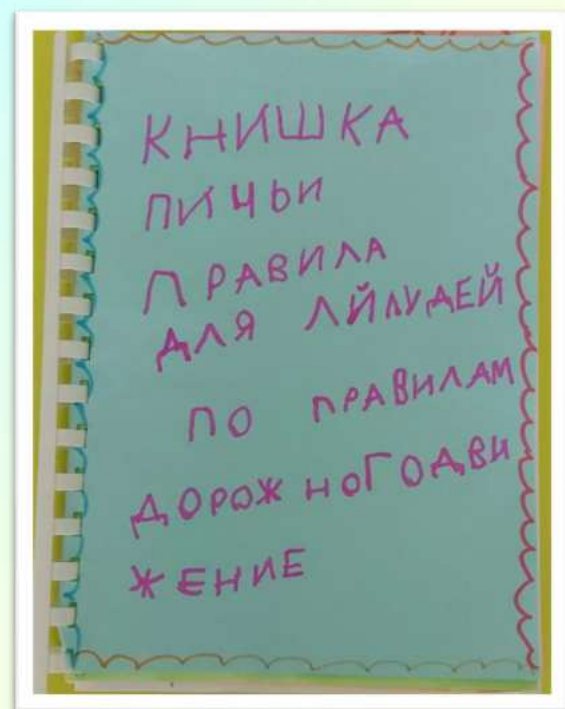 КНИШКА
ПИЧЬИ
ПРАВИЛА
ДЛЯ ЛЙЛУДЕЙ
ПО ПРАВИЛАМ
ДОРОЖНОГОДВИ
ЖЕНИЕ